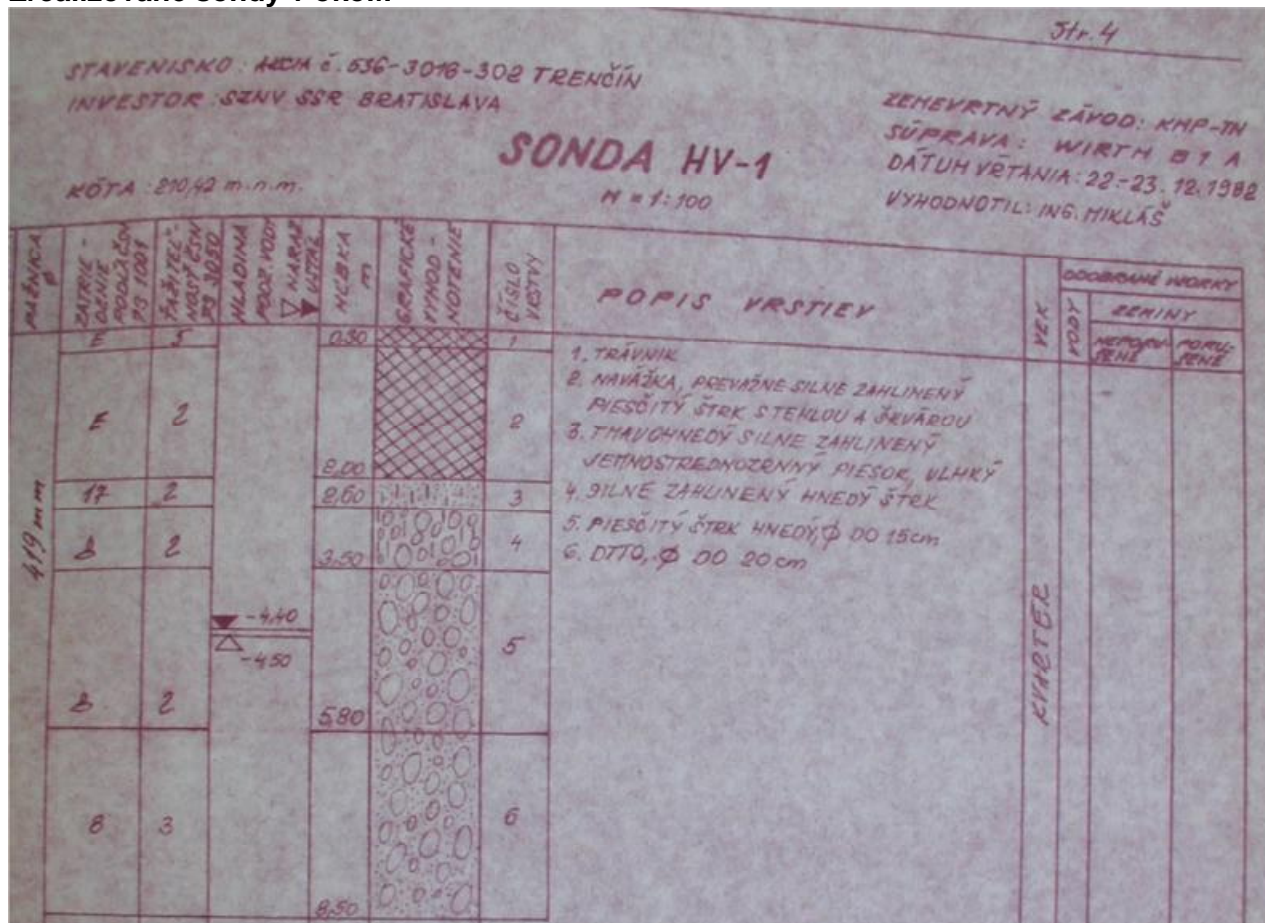 Str. 4
STAVENISKO: AKCIA č. 536-3016-302 TRENČÍN
INVESTOR: SZNV SSR BRATISLAVA
ZEMEVRTNÝ ZÁVOD: KMP-TN
SÚPRAVA: WIRTH B1A
DÁTUM VŔTANIA: 22.-23. 12. 1982
VYHODNOTIL: ING. MIKLÁŠ
SONDA HV-1
KÓTA: 210,42 m.n.m.
M = 1:100
PAŽNICA
ZATRIE-
DENIE
PODĽA ČSN
73 1001
ŤAŽITEĽ-
NOSŤ ČSN
73 3050
HLADINA
PODZ. VODY
▽ NARAZ.
▼ USTÁL.
HĹBKA
m
GRAFICKÉ
VYHOD-
NOTENIE
ČÍSLO
VRSTVY
POPIS VRSTIEV
VEK
ODOBRANÉ VZORKY
VODY
ZEMINY
NEPORU-
ŠENÉ
PORU-
ŠENÉ
419 mm
E 3 0,30 1
E 2 2,00 2
17 2 2,60 3
8 2 3,50 4
-4,40
-4,50
8 2 5,80 5
8 3 8,50 6
1. TRÁVNIK
2. NAVÁŽKA, PREVAŽNE SILNE ZAHLINENÝ
PIESČITÝ ŠTRK S TEHLOU A ŠKVÁROU
3. TMAVOHNEDÝ SILNE ZAHLINENÝ
JEMNOSTREDNOZRNNÝ PIESOK, VLHKÝ
4. SILNE ZAHLINENÝ HNEDÝ ŠTRK
5. PIESČITÝ ŠTRK HNEDÝ, ϕ DO 15 cm
6. DTTO, ϕ DO 20 cm
KVARTÉR